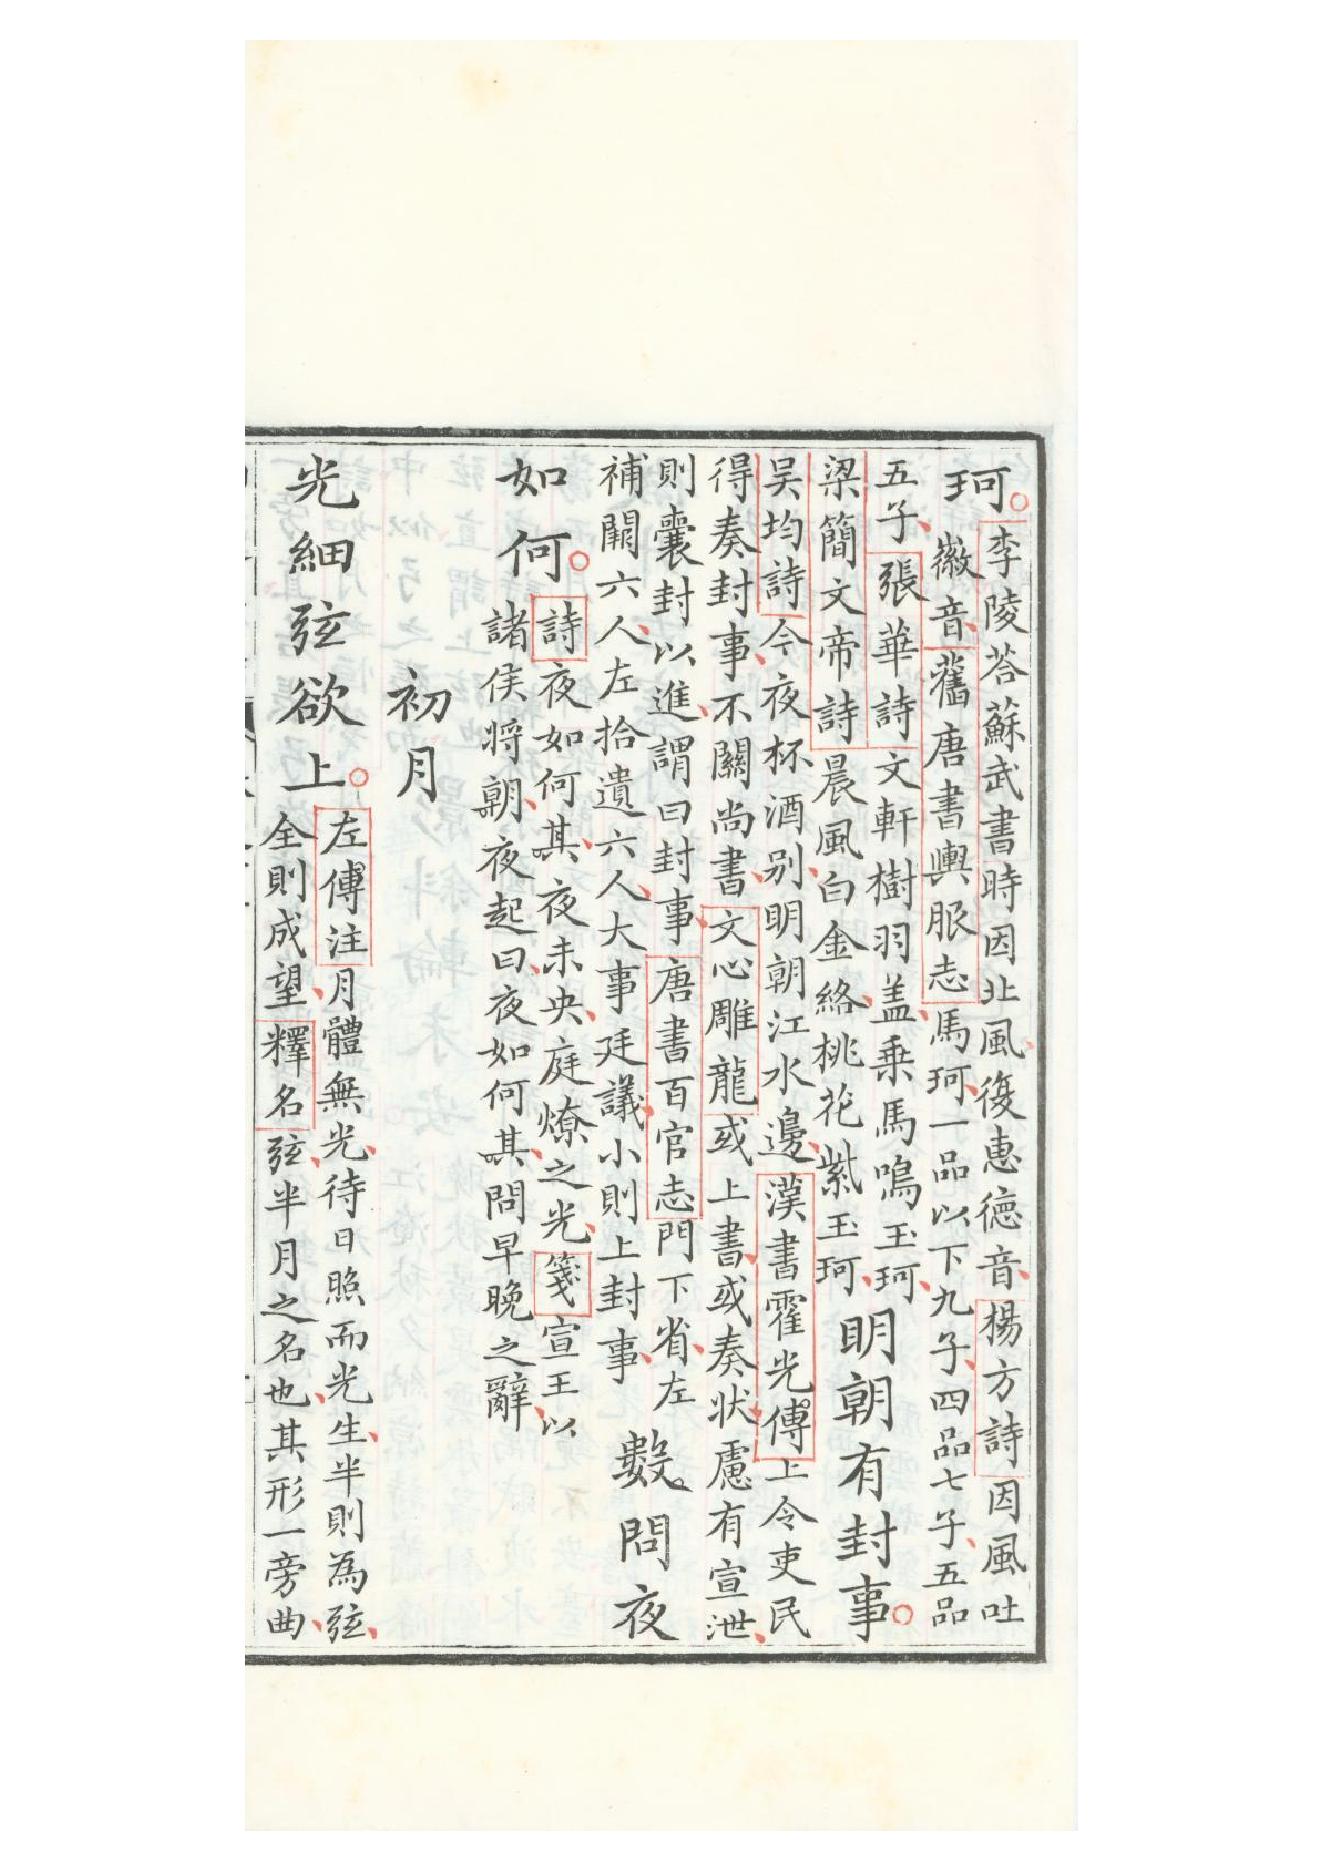 珂李陵荅蘇武書時因北風復惠德音楊方詩因風吐
徽音舊唐書輿服志馬珂一品以下九子四品七子五品
五子張華詩文軒樹羽盖乗馬鳴玉珂
梁簡文帝詩晨風白金絡桃花紫玉珂
明朝有封事
吴均詩今夜杯酒别明朝江水邊漢書霍光傅上令吏民
得奏封事不關尚書文心雕龍或上書或奏状慮有宣泄
則囊封以進謂曰封事唐書百官志門下省左
補闕六人左拾遺六人大事廷議小則上封事
數問夜
如何詩夜如何其夜未央庭燎之光箋宣王以
諸侯将朝夜起曰夜如何其問早晚之辭
初月
光細弦欲上左傅注月體無光待日照而光生半則為弦
全則成望釋名弦半月之名也其形一旁曲